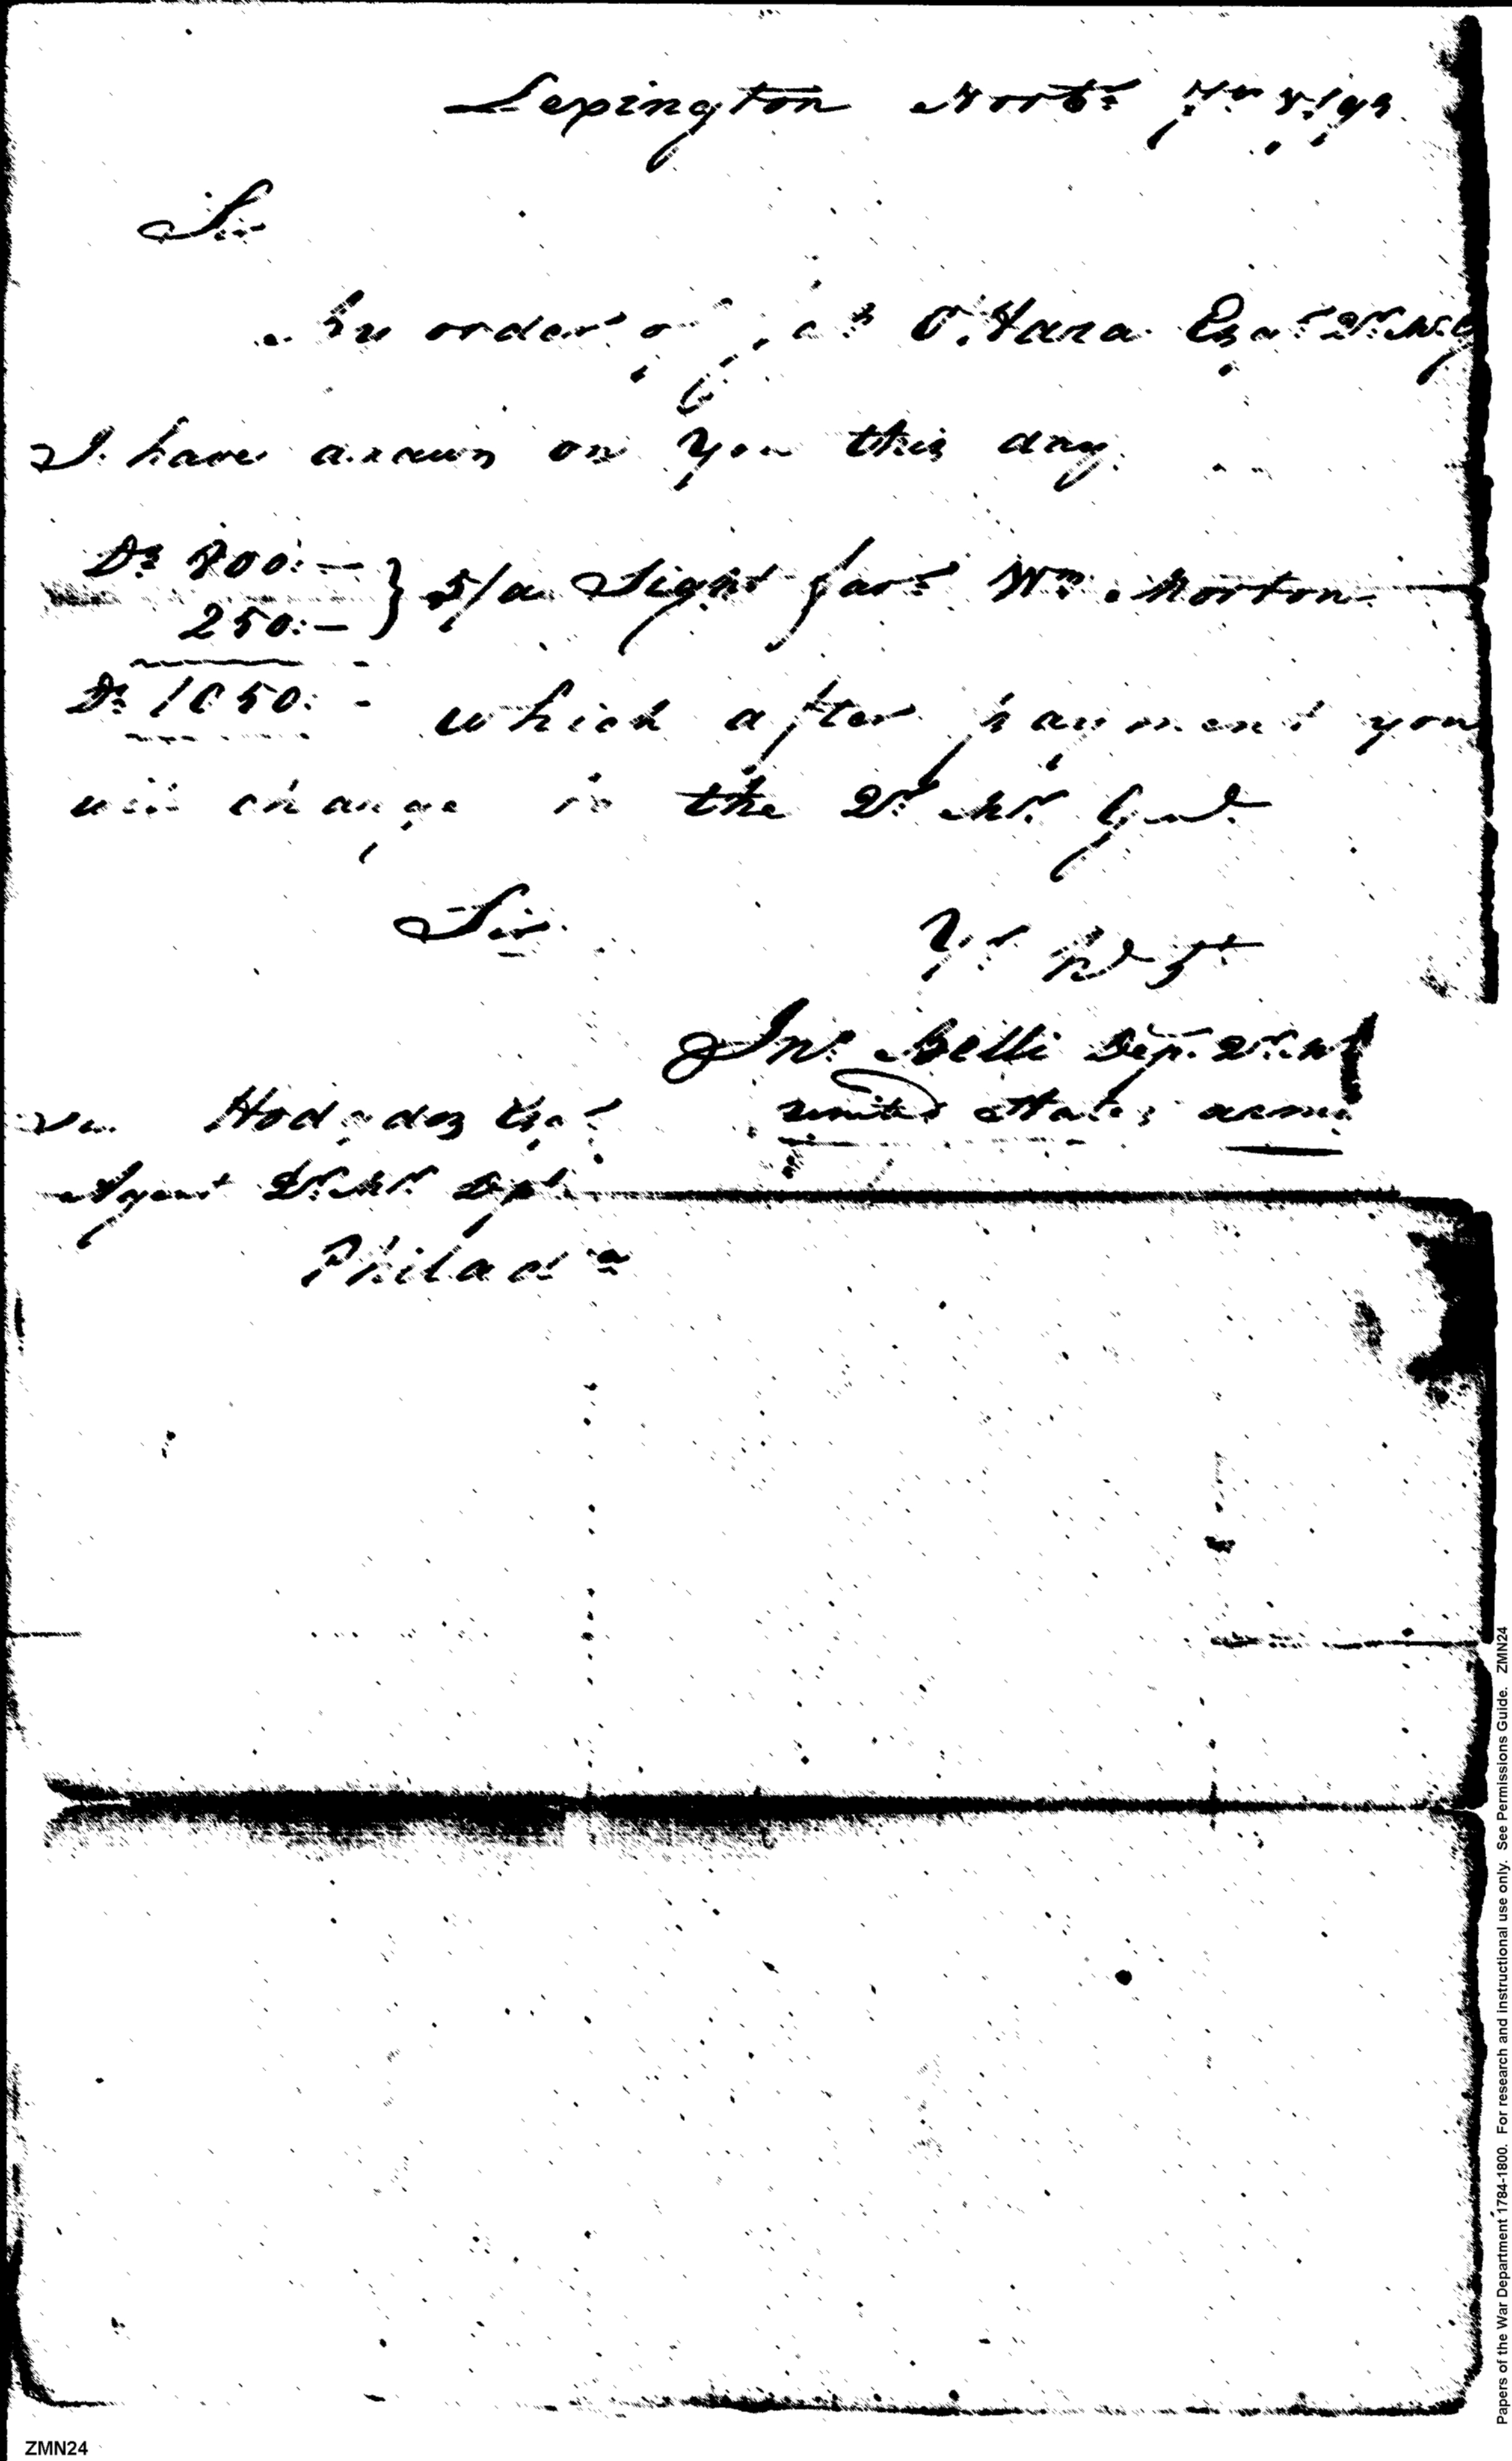 Lexington Novbr
Sir
By order of O'Hara Esqr Qr M. G
I have drawn on you this day
Ds 800:—
250:— } 5/d Sight favr Wm. Morton
Ds 1050:- which after payment you
will charge to the Qr Mr Genl
Sir Yr hb St
Jno Belli Dep. Qr. M G
united States army
Hodgdon Esqr
Agent Qr Mr Dept
Philada
Papers of the War Department 1784-1800. For research and instructional use only. See Permissions Guide. ZMN24
ZMN24